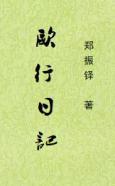 欧行日記
郑振铎 著